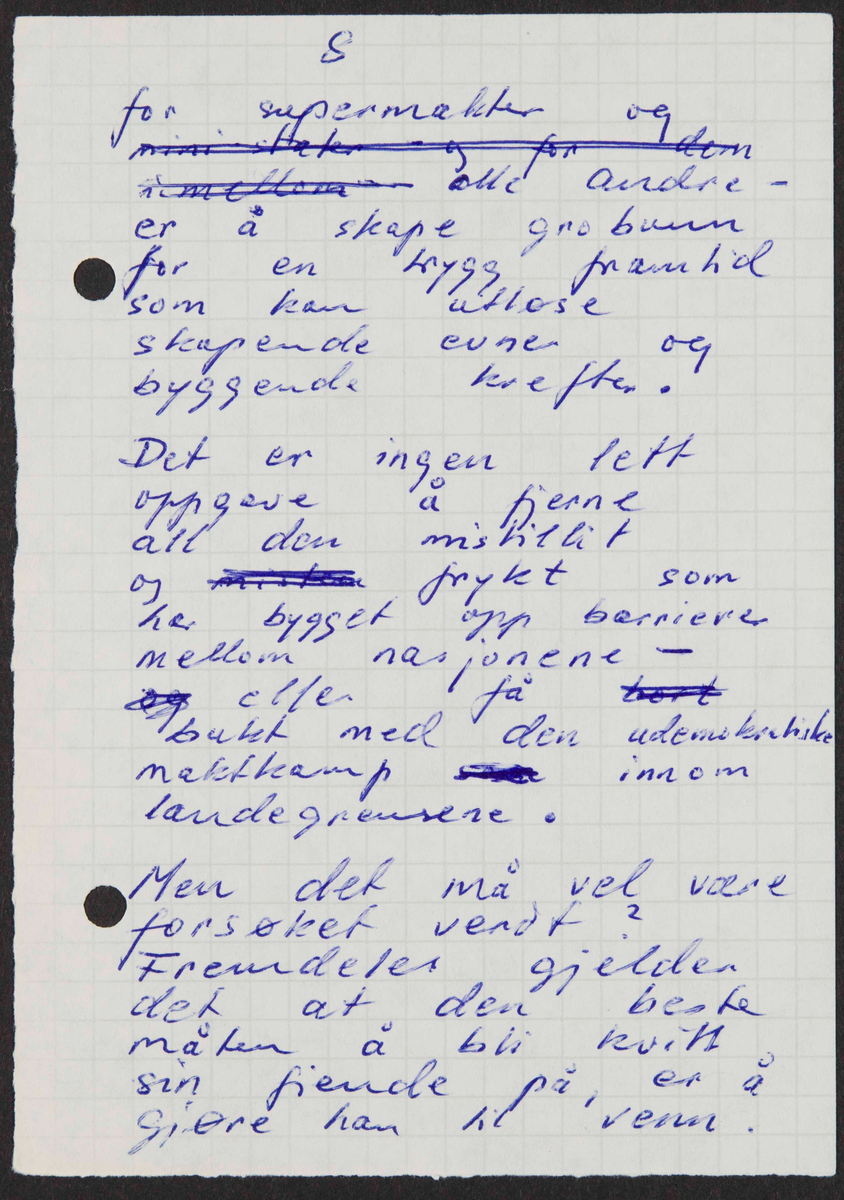 8
for supermakter og
mini-stater - og for dem
imellom - alle andre -
er å skape grobunn
for en trygg framtid
som kan utløse
skapende evner og
byggende krefter.
Det er ingen lett
oppgave å fjerne
all den mistillit
og frykt som
har bygget opp barrierer
mellom nasjonene -
og eller få bort
bukt med den udemokratiske
maktkamp innom
landegrensene.
Men det må vel være
forsøket verdt?
Fremdeles gjelder
det at den beste
måten å bli kvitt
sin fiende på, er å
gjøre han til venn.